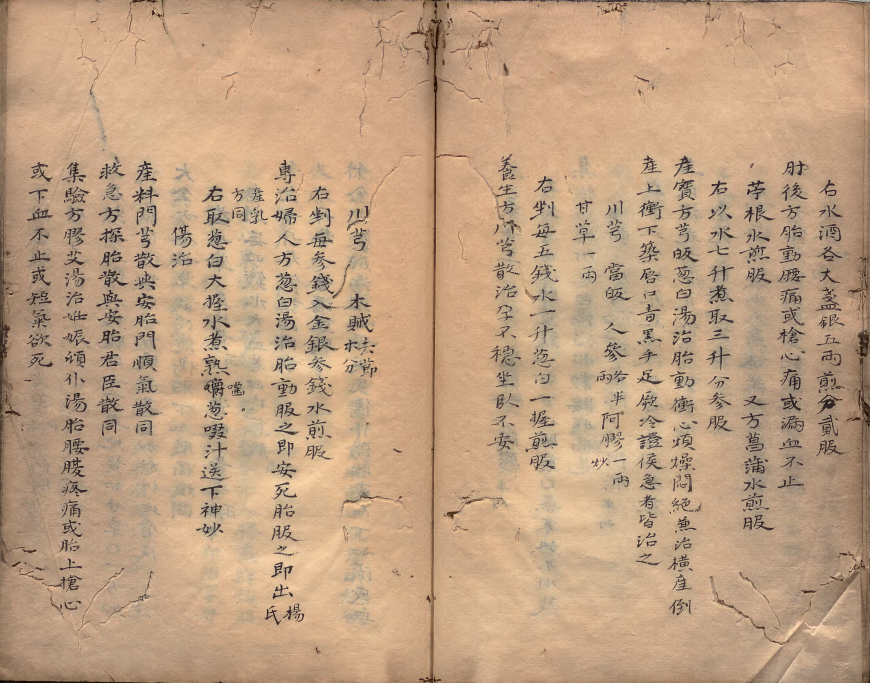 右水酒各大盞銀五兩煎分貳服
肘後方胎動腰痛或搶心痛或漏血不止
苧根水煎服　又方菖蒲水煎服
右以水七升煮取三升分參服
產寶方芎皈葱白湯治胎動衝心煩燥悶絕兼治橫産倒
産上衝下築唇口青黑手足厥冷證侯急者皆治之
川芎　當皈　人參各半兩　阿膠一兩炒
甘草一兩
右剉每五錢水一升葱白一握煎服
養生方川芎散治孕不穩坐臥不安
川芎　木賊去節等分
右剉每參錢入金銀參錢水煎服
專治婦人方葱白湯治胎動服之即安死胎服之即出楊氏
産乳方同
右取葱白大握水煮熟嚼葱啜汁送下神妙
傷治
產料門芎散與安胎門順氣散同
救急方探胎散與安胎君臣散同
集驗方膠艾湯治妊娠頓仆湯胎腰腹疼痛或胎上搶心
或下血不止或短氣欲死